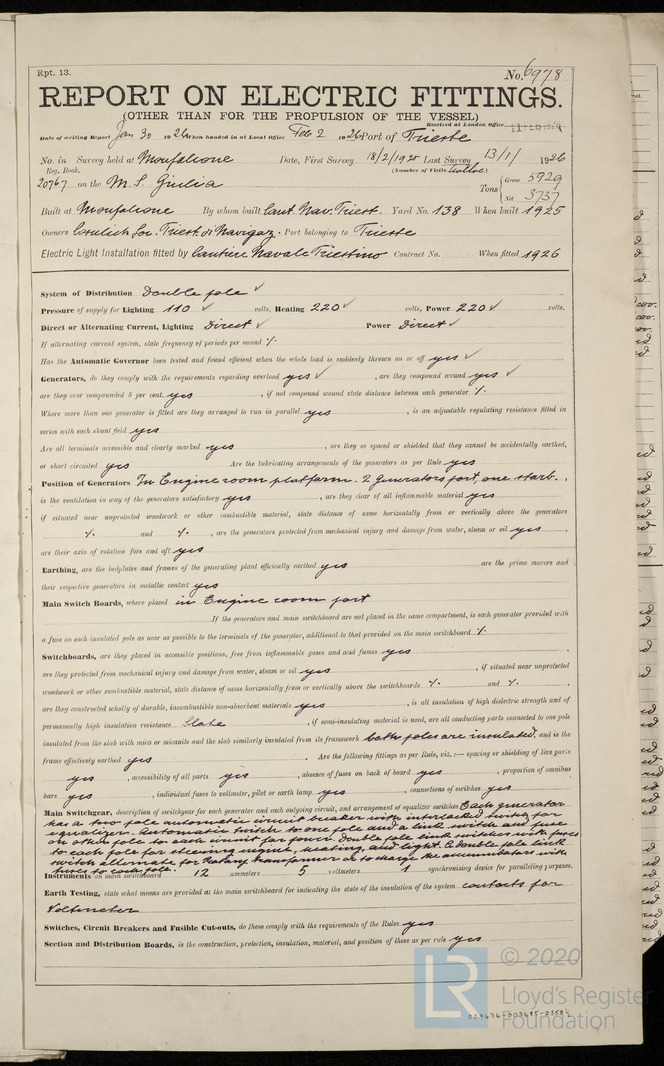 Rpt. 13.
No. 6978
REPORT ON ELECTRIC FITTINGS.
(OTHER THAN FOR THE PROPULSION OF THE VESSEL)
Received at London Office
Date of writing Report Jan 30 1926 When handed in at Local Office Feb 2 1926 Port of Trieste
No. in Survey held at Monfalcone Date, First Survey 18/2/1925 Last Survey 13/1/ 1926
Reg. Book. (Number of Visits
20767 on the M.S. Giulia Tons { Gross 5929
Net 3737
Built at Monfalcone By whom built Cant. Nav. Triest. Yard No. 138 When built 1925
Owners Cosulich Soc. Triest. di Navigaz. Port belonging to Trieste
Electric Light Installation fitted by Cantiere Navale Triestino Contract No. When fitted 1926
System of Distribution Double pole ✓
Pressure of supply for Lighting 110 ✓ volts, Heating 220 ✓ volts, Power 220 ✓ volts.
Direct or Alternating Current, Lighting Direct ✓ Power Direct ✓
If alternating current system, state frequency of periods per second ⁒
Has the Automatic Governor been tested and found efficient when the whole load is suddenly thrown on or off yes ✓
Generators, do they comply with the requirements regarding overload yes ✓, are they compound wound yes ✓
are they over compounded 5 per cent. yes, if not compound wound state distance between each generator ⁒
Where more than one generator is fitted are they arranged to run in parallel yes, is an adjustable regulating resistance fitted in
series with each shunt field yes
Are all terminals accessible and clearly marked yes, are they so spaced or shielded that they cannot be accidentally earthed,
or short circuited yes Are the lubricating arrangements of the generators as per Rule yes
Position of Generators In Engine room platform. 2 generators port, one starb.
is the ventilation in way of the generators satisfactory yes, are they clear of all inflammable material yes
if situated near unprotected woodwork or other combustible material, state distance of same horizontally from or vertically above the generators
⁒ and ⁒, are the generators protected from mechanical injury and damage from water, steam or oil yes
are their axis of rotation fore and aft yes
Earthing, are the bedplates and frames of the generating plant efficiently earthed yes are the prime movers and
their respective generators in metallic contact yes
Main Switch Boards, where placed in Engine room port
If the generators and main switchboard are not placed in the same compartment, is each generator provided with
a fuse on each insulated pole as near as possible to the terminals of the generator, additional to that provided on the main switchboard ⁒
Switchboards, are they placed in accessible positions, free from inflammable gases and acid fumes yes,
are they protected from mechanical injury and damage from water, steam or oil yes, if situated near unprotected
woodwork or other combustible material, state distance of same horizontally from or vertically above the switchboards ⁒ and ⁒,
are they constructed wholly of durable, incombustible non-absorbent materials yes, is all insulation of high dielectric strength and of
permanently high insulation resistance Slate, if semi-insulating material is used, are all conducting parts connected to one pole
insulated from the slab with mica or micanite and the slab similarly insulated from its framework both poles are insulated, and is the
frame effectively earthed yes. Are the following fittings as per Rule, viz.:— spacing or shielding of live parts
yes, accessibility of all parts yes, absence of fuses on back of board yes, proportion of omnibus
bars yes, individual fuses to voltmeter, pilot or earth lamp yes, connections of switches yes
Main Switchgear, description of switchgear for each generator and each outgoing circuit, and arrangement of equalizer switches Each generator
has a two pole automatic circuit breaker with interlocked switch for
equalizer. Automatic switch to one pole and a link switch and fuse
on other pole to each circuit for power. Double pole link switches with fuses
to each pole for steering engine, heating, and light. A double pole link
switch alternate for Rotary transformer or to charge the accumulators with
fuses to each pole.
Instruments on main switchboard 12 ammeters 5 voltmeters 1 synchronising device for paralleling purposes.
Earth Testing, state what means are provided at the main switchboard for indicating the state of the insulation of the system contacts for
Voltmeter
Switches, Circuit Breakers and Fusible Cut-outs, do these comply with the requirements of the Rules yes
Section and Distribution Boards, is the construction, protection, insulation, material, and position of these as per rule yes
© 2020
LR
Lloyd's Register
Foundation